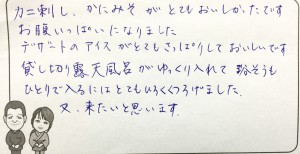 カニ刺し、かにみそ がとてもおいしかったです
お腹いっぱいになりました
デザートのアイスがとてもさっぱりしておいしいです
貸し切り露天風呂がゆっくり入れて
ひとりで入るにはとてもひろくくつろげました。
又、来たいと思います。